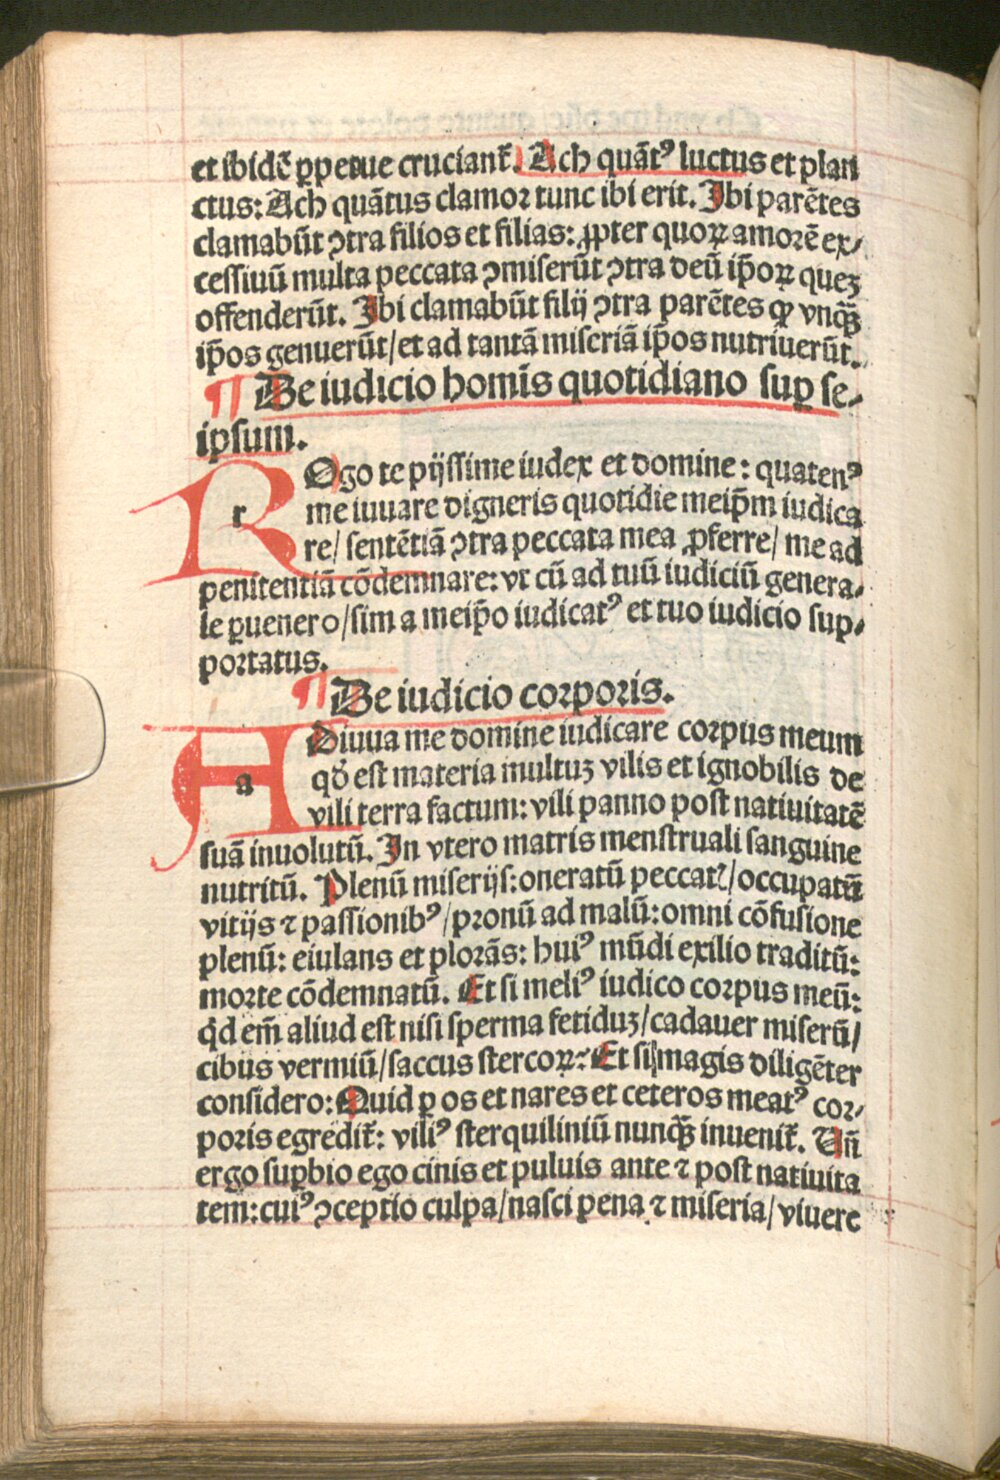 et ibidē ꝑpetue cruciant᷑. Ach quātꝰ luctus et plan
ctus: Ach quātus clamoꝛ tunc ibi erit. Ibi parētes
clamabūt ꝯtra filios et filias: ꝓpter quoꝝ amorē ex⸗
cessiuū multa peccata ꝯmiserūt ꝯtra deū ip̄oꝝ quez
offenderūt. Ibi clamabūt filij ꝯtra parētes ꝙ vnqꝫ̄
ip̄os genuerūt/et ad tantā miseriā ip̄os nutriuerūt.
¶ De iudicio homīs quotidiano suꝑ se⸗
ipsum.
R r Ogo te pijssime iudex et domine: quatenꝰ
me iuuare digneris quotidie meip̄m iudica
re/ sentētiā ꝯtra peccata mea ꝓferre/ me ad
penitentiā cōdemnare: vt cū ad tuū iudiciū genera⸗
le ꝑuenero/sim a meip̄o iudicatꝰ et tuo iudicio sup⸗
poꝛtatus.
¶ De iudicio coꝛpoꝛis.
A a Diuua me domine iudicare coꝛpus meum
qd̄ est materia multuz vilis et ignobilis de
vili terra factum: vili panno post natiuitatē
suā inuolutū. In vtero matris menstruali sanguine
nutritū. Plenū miserijs: oneratū peccatꝭ/occupatū
vitijs ⁊ passionibꝰ/pronū ad malū: omni cōfusione
plenū: eiulans et ploꝛās: huiꝰ mūdi exilio traditū:
moꝛte cōdemnatū. Et si meliꝰ iudico coꝛpus meū:
qd̄ em̄ aliud est nisi sperma fetiduz/cadauer miserū/
cibus vermiū/saccus stercoꝝ: Et si magis diligēter
considero: Quid ꝑ os et nares et ceteros meatꝰ coꝛ⸗
poꝛis egredit᷑: viliꝰ sterquiliniū nunqꝫ̄ inuenit᷑. Vn̄
ergo suꝑbio ego cinis et puluis ante ⁊ post natiuita
tem: cuiꝰ ꝯceptio culpa/nasci pena ⁊ miseria/viuere